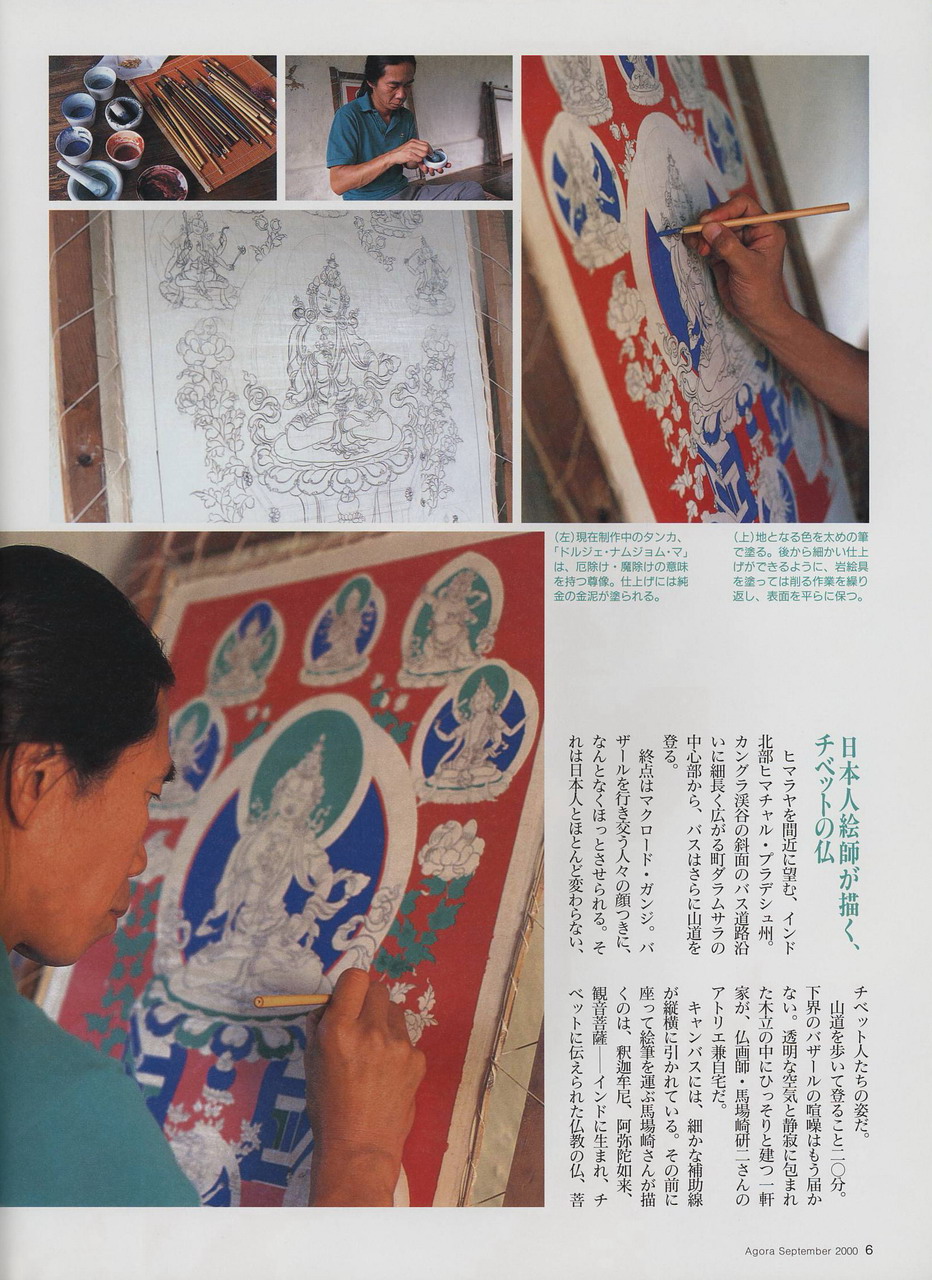 (左)現在制作中のタンカ、
「ドルジェ・ナムジョム・マ」
は、厄除け・魔除けの意味
を持つ尊像。仕上げには純
金の金泥が塗られる。
(上)地となる色を太めの筆
で塗る。後から細かい仕上
げができるように、岩絵具
を塗っては削る作業を繰り
返し、表面を平らに保つ。
日本人絵師が描く、
チベットの仏
ヒマラヤを間近に望む、インド
北部ヒマチャル・プラデシュ州。
カングラ渓谷の斜面のバス道路沿
いに細長く広がる町ダラムサラの
中心部から、バスはさらに山道を
登る。
終点はマクロード・ガンジ。バ
ザールを行き交う人々の顔つきに、
なんとなくほっとさせられる。そ
れは日本人とほとんど変わらない、
チベット人たちの姿だ。
山道を歩いて登ること二〇分。
下界のバザールの喧噪はもう届か
ない。透明な空気と静寂に包まれ
た木立の中にひっそりと建つ一軒
家が、仏画師・馬場崎研二さんの
アトリエ兼自宅だ。
キャンバスには、細かな補助線
が縦横に引かれている。その前に
座って絵筆を運ぶ馬場崎さんが描
くのは、釈迦牟尼、阿弥陀如来、
観音菩薩——インドに生まれ、チ
ベットに伝えられた仏教の仏、菩
Agora September 2000 6